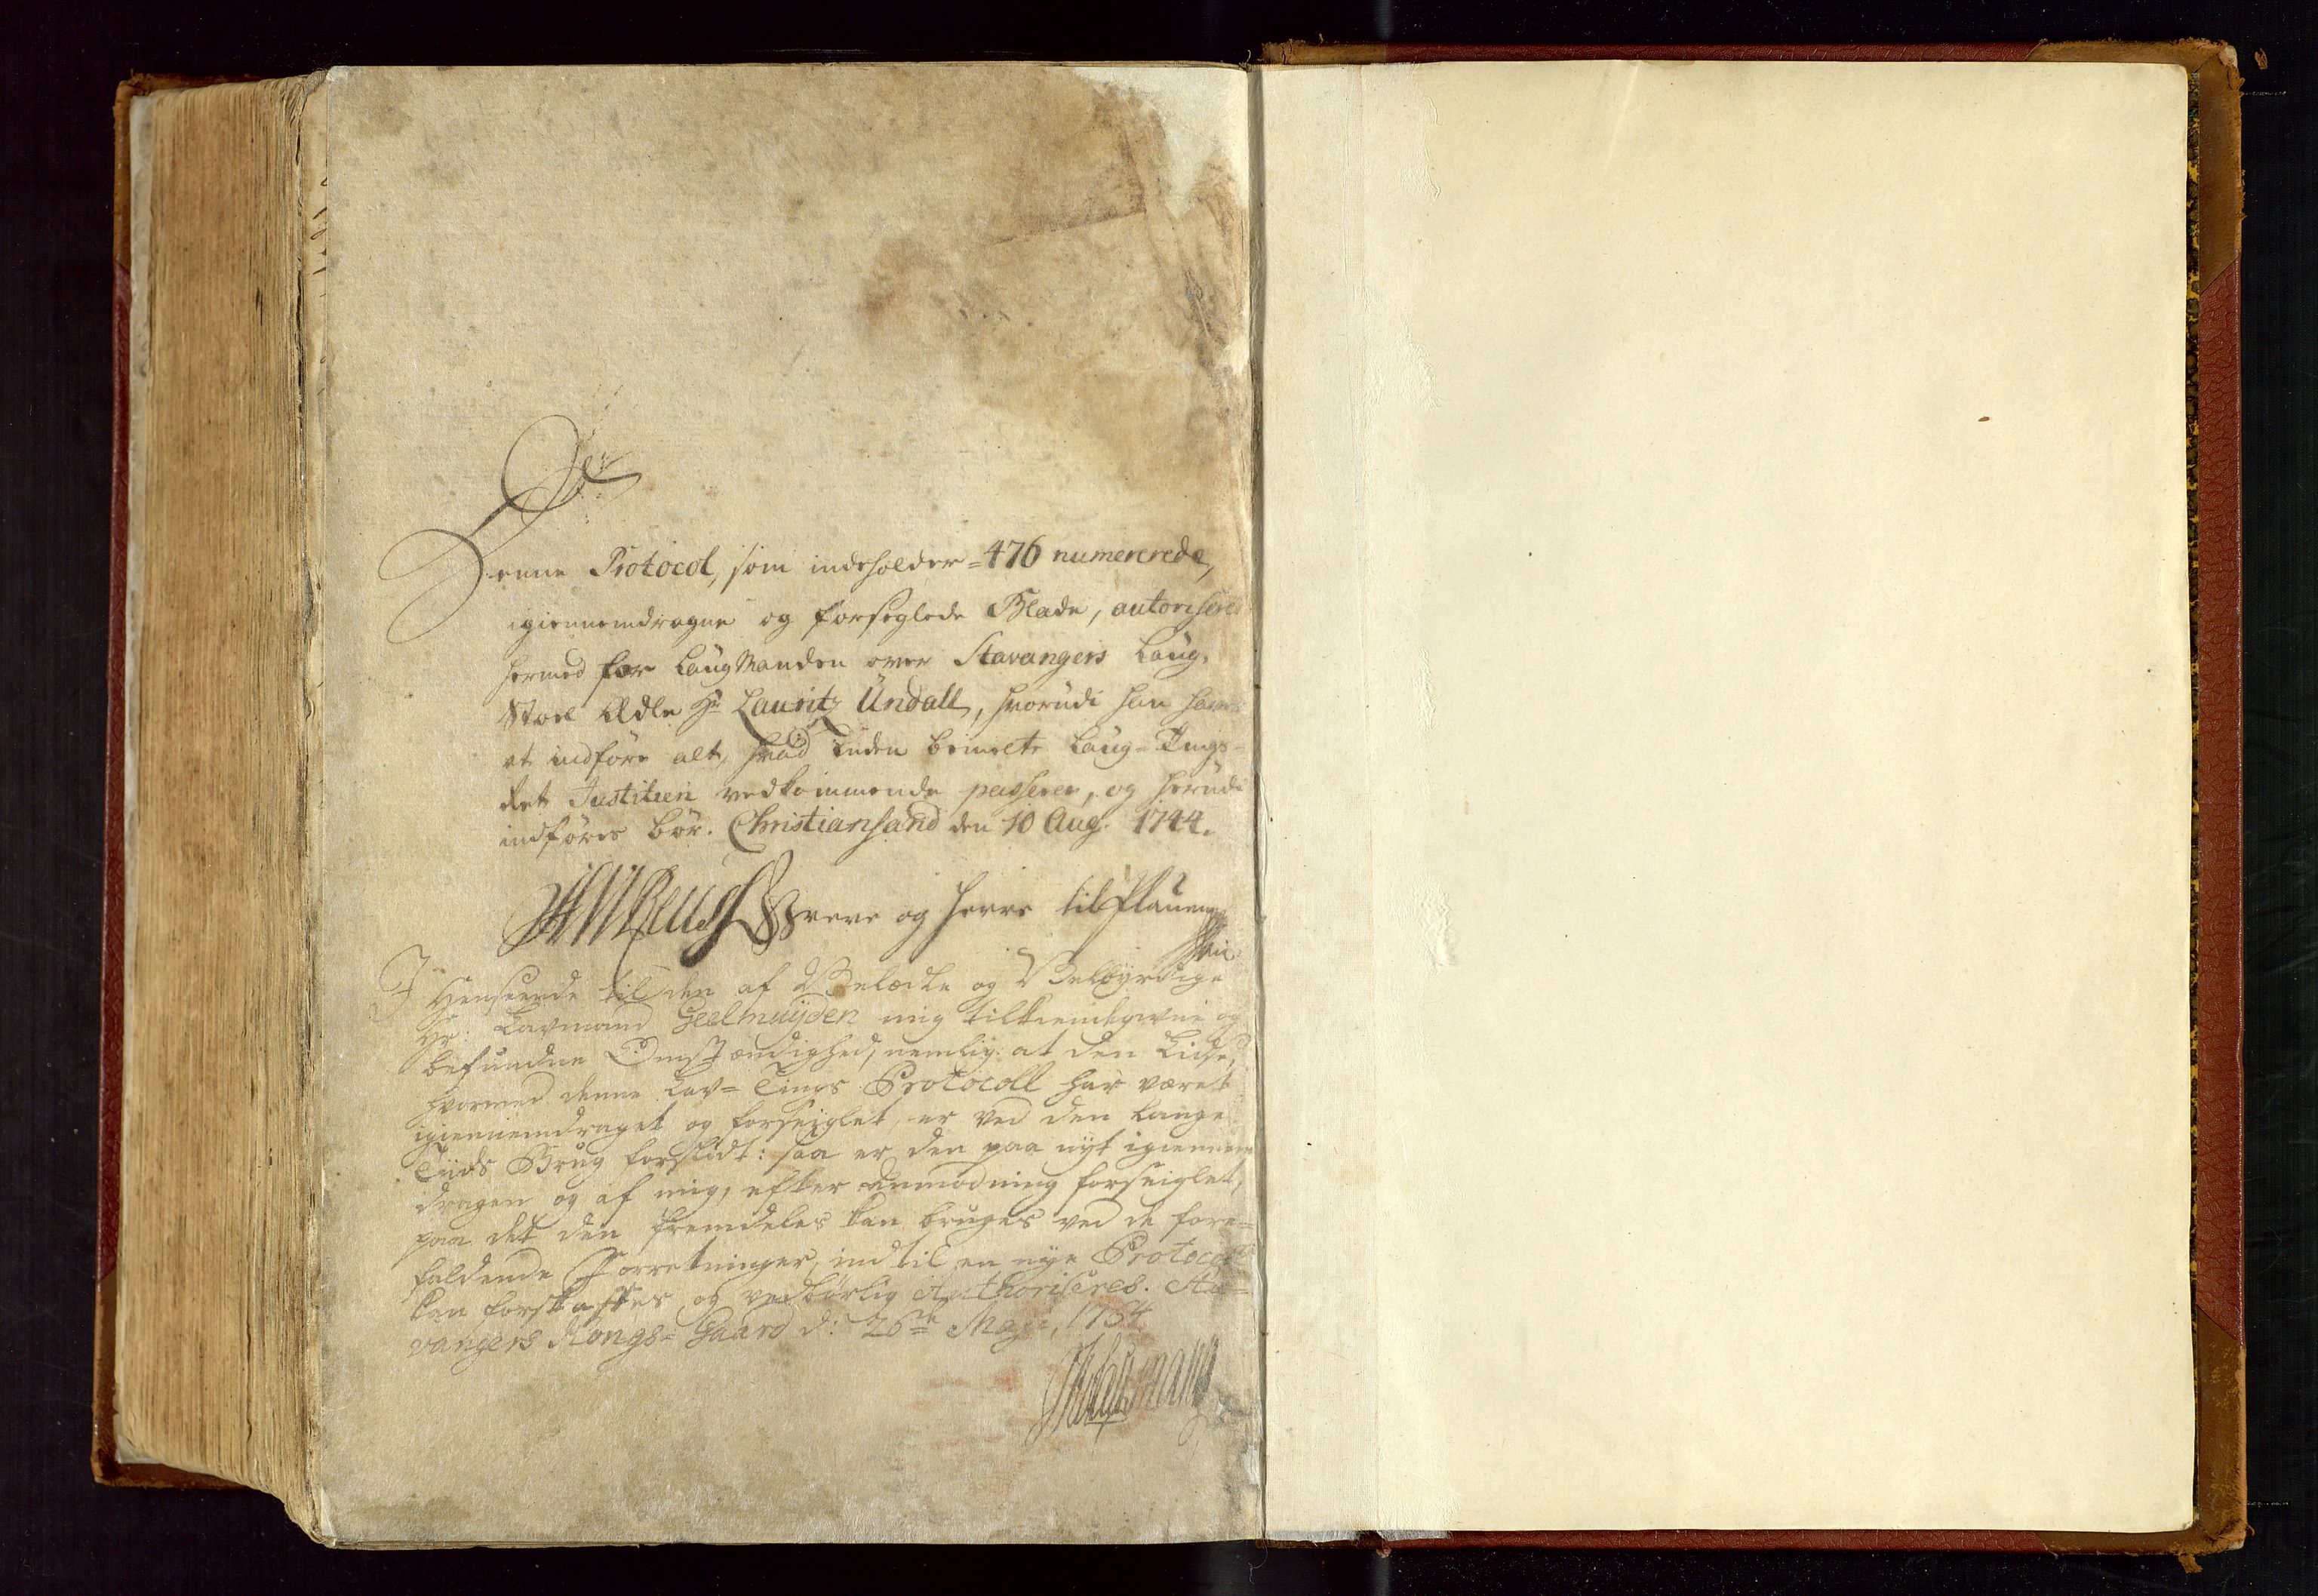 Denne Protocol, som indeholder = 476 numererede,
igiennemdragne og forseglede Blade, autoriseres
hermed for Laug Manden over Stavangers Laug-
Stoel Ædle Hr. Lauritz Undall, hvorudi han haver
at indføre alt, hvad Inden bemelte Laug-Tings-
Ret Justitien vedkommende passerer, og herudi
indføres bør. Christiansand den 10 Aug. 1744.
Greve og Herre til Plauen
I Henseende til den af Velædle og Velbyrdige
Hr. Lavmand Geelmuijden mig tilkiendegivne og
befundne Omstændighed, nemlig: at den Lidse,
hvormed denne Lav-Tings Protocoll har været
igiennemdraget og forseiglet, er ved den lange
Tiids Brug forslidt: saa er den paa nyt igiennem
dragen og af mig, efter Anmodning forseiglet,
paa det den fremdeles kan bruges ved de fore-
faldende Forretninger, indtil en nye Protocoll
kan forskaffes og vedbørlig Authoriseres. Sta-
vangers Kongs-Gaard d: 26de Maji, 1764